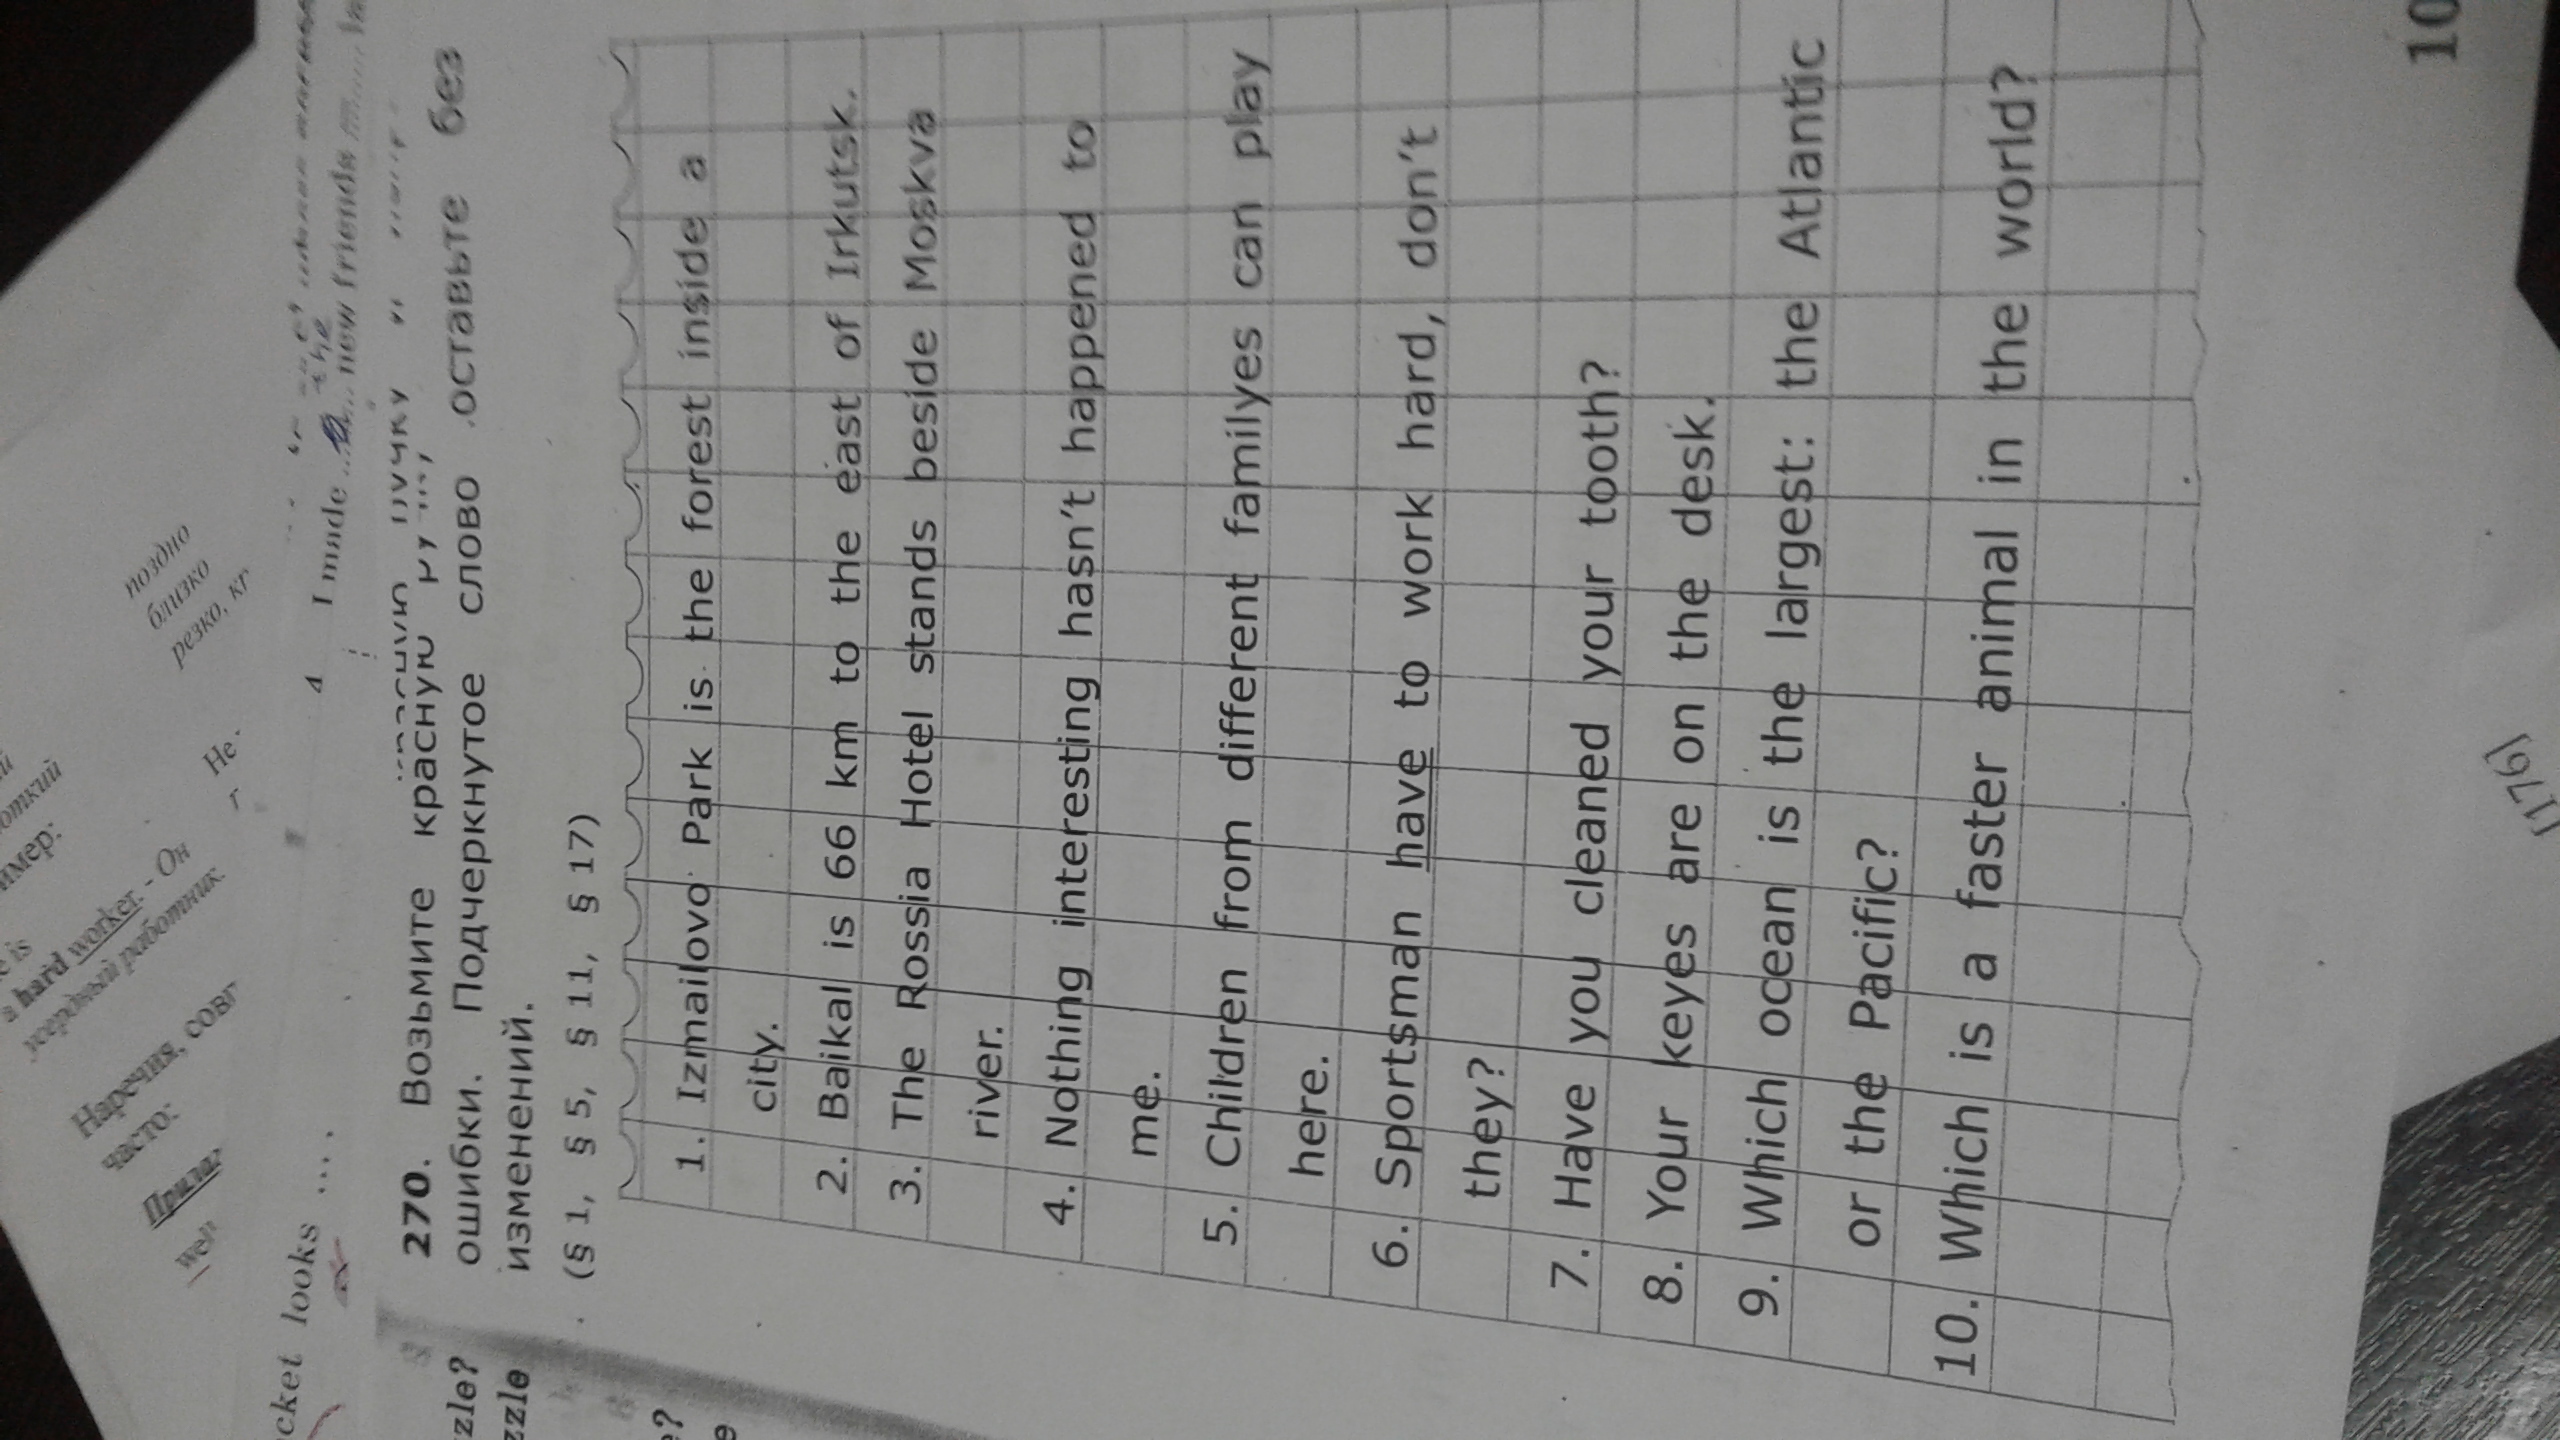 поздно
близко
резко, кг
откий
имер:
Не
г
e is
a hard worker. - Он
усердный работник.
Наречия, совг
часто:
Прилаг
well
cket looks ....
4 I made ... a ... new friends
the
270. Возьмите красную ручку
ошибки. Подчеркнутое слово оставьте без
изменений.
(§ 1, § 5, § 11, § 17)
1. Izmailovo Park is the forest inside a
city.
2. Baikal is 66 km to the east of Irkutsk.
3. The Rossia Hotel stands beside Moskva
river.
4. Nothing interesting hasn't happened to
me.
5. Children from different familyes can play
here.
6. Sportsman have to work hard, don't
they?
7. Have you cleaned your tooth?
8. Your keyes are on the desk.
9. Which ocean is the largest: the Atlantic
or the Pacific?
10. Which is a faster animal in the world?
zzle?
zzle
e?
e
10
[176]